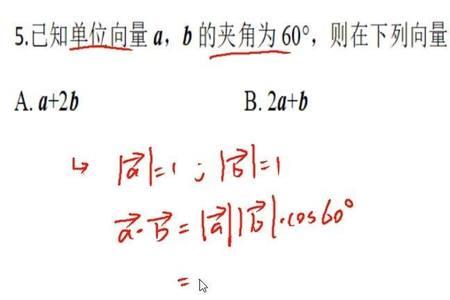 5.已知单位向量 a，b 的夹角为 60°，则在下列向量
A. a+2b B. 2a+b
↳ |a⃗|=1 ; |b⃗|=1
a⃗·b⃗ = |a⃗||b⃗|·cos60°
=